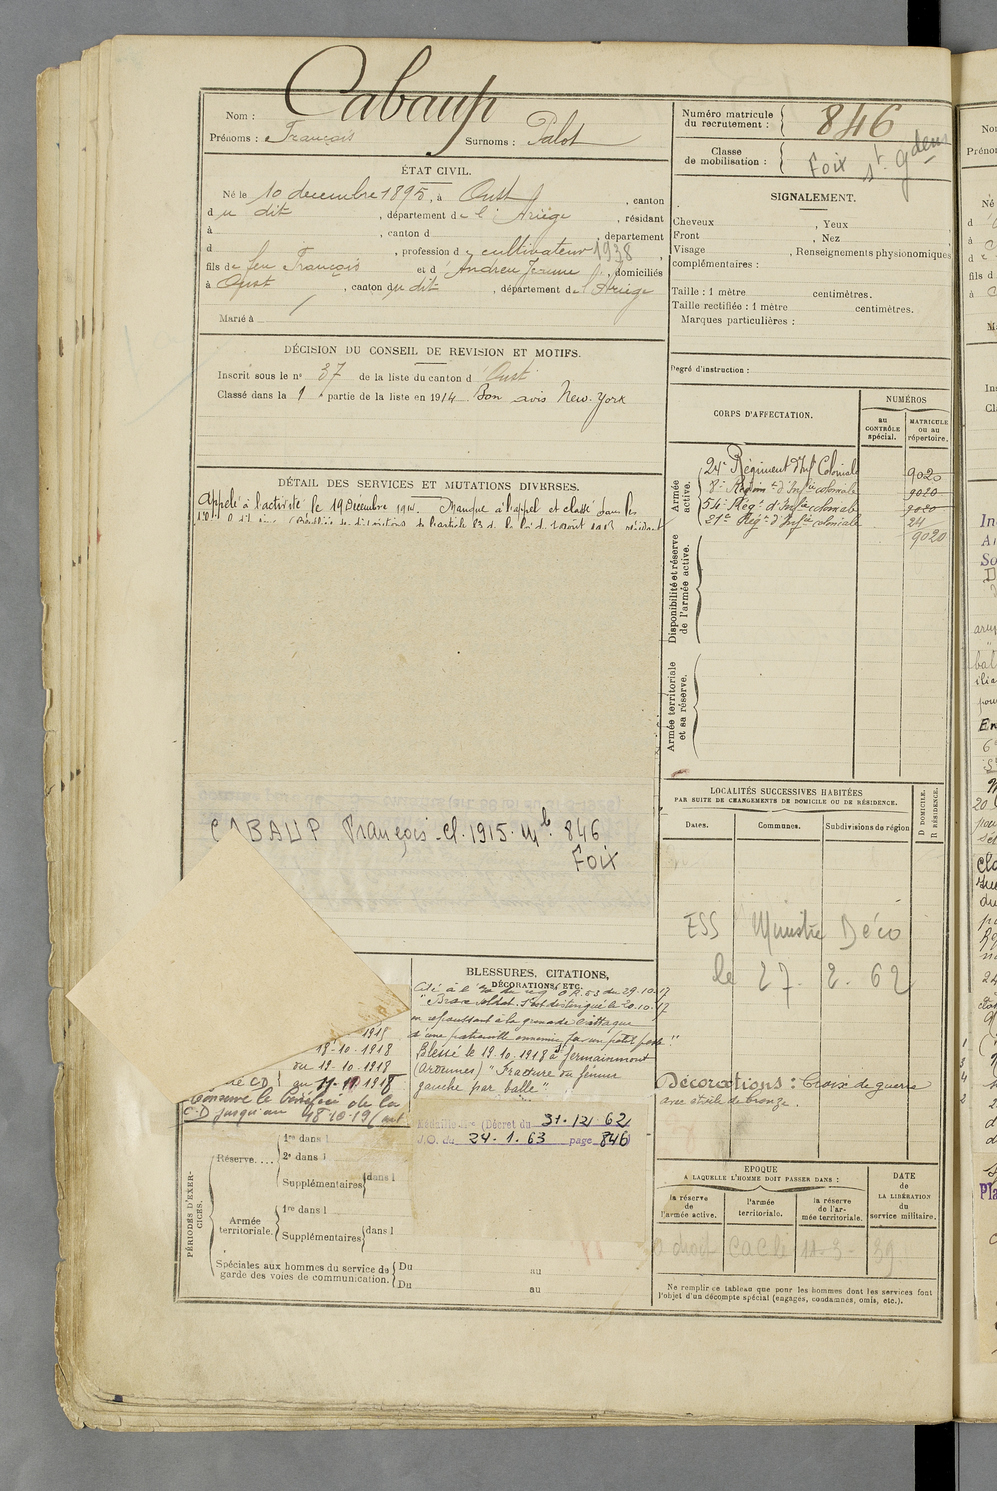 Nom : Cabaup
Prénoms : François Surnoms : Palot
ÉTAT CIVIL.
Né le 10 decembre 1895, à Oust, canton
d u dit, département de l' Ariège, résidant
à , canton d , département
d , profession de cultivateur 1938,
fils de feu François et d' Andreu Jeanne, domiciliés
à Oust, canton du dit, département de l'Ariège
Marié à
DÉCISION DU CONSEIL DE REVISION ET MOTIFS.
Inscrit sous le n° 37 de la liste du canton d'Oust
Classé dans la 1 partie de la liste en 1914 Bon avis New-York
DÉTAIL DES SERVICES ET MUTATIONS DIVERSES.
Appelé à l'activité le 19 Décembre 1914. Manque à l'appel et classé dans les
CABAUP François cl. 1915. Mle 846
Foix
1918
19-10-1918
au 19-10-1918
CD au 11-11-1918
Conserve le bénéfice de la
C-D jusqu'au 18-10-19
BLESSURES, CITATIONS,
DÉCORATIONS, ETC.
Cité à l'o. du rég. O.R. 53 du 29.10.17
"Brave soldat. S'est distingué le 20.10.17
en repoussant à la grenade l'attaque
d'une patrouille ennemie sur un petit poste"
Blessé le 19.10.1918 à Germainmont
(Ardennes) "Fracture du fémur
gauche par balle"
Médaille (Décret du 31-12-62
J.O. du 24.1.63 page 846)
PÉRIODES D'EXERCICES.
Réserve....
1re dans l
2e dans l
Supplémentaires dans l
Armée territoriale.
1re dans l
Supplémentaires dans l
Spéciales aux hommes du service de garde des voies de communication.
Du au
Du au
Numéro matricule du recrutement : 846
Classe de mobilisation :
Foix St Gdens
SIGNALEMENT.
Cheveux , Yeux
Front , Nez
Visage , Renseignements physionomiques
complémentaires :
Taille : 1 mètre centimètres.
Taille rectifiée : 1 mètre centimètres.
Marques particulières :
Degré d'instruction :
CORPS D'AFFECTATION.
NUMÉROS
au CONTRÔLE spécial.
MATRICULE ou au répertoire.
Armée active.
24e Régiment d'Infie Coloniale 9020
8e Régimt d'Infie coloniale 9020
54e Régt d'Infie coloniale 9020
21e Régt d'Infie coloniale 24
9020
Disponibilité et réserve de l'armée active.
Armée territoriale et sa réserve.
LOCALITÉS SUCCESSIVES HABITÉES
PAR SUITE DE CHANGEMENTS DE DOMICILE OU DE RÉSIDENCE.
Dates.
Communes.
Subdivisions de région
D DOMICILE.
R RÉSIDENCE.
ESS Ministre Déco
le 27. 2. 62
Décorations : Croix de guerre
avec étoile de bronze.
EPOQUE
A LAQUELLE L'HOMME DOIT PASSER DANS :
la réserve de l'armée active.
l'armée territoriale.
la réserve de l'armée territoriale.
DATE de LA LIBÉRATION du service militaire.
a droit CaCl 11-3-39
Ne remplir ce tableau que pour les hommes dont les services font
l'objet d'un décompte spécial (engagés, condamnés, omis, etc.).